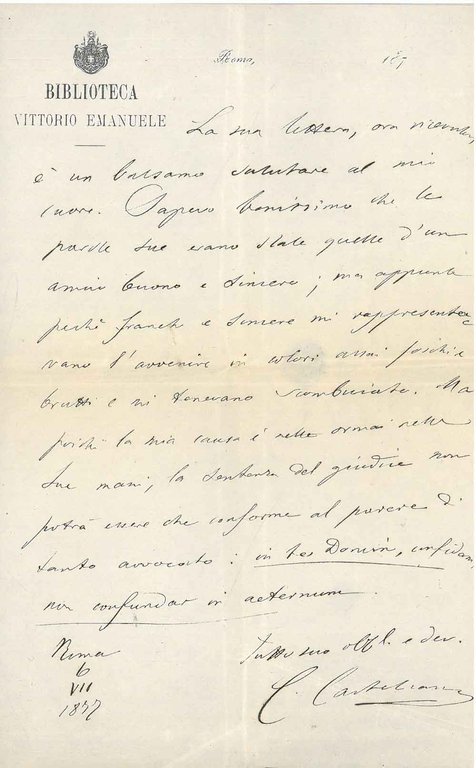 Roma, 187
BIBLIOTECA
VITTORIO EMANUELE
La sua lettera, ora ricevuta,
è un balsamo salutare al mio
cuore. Sapevo benissimo che le
parole sue erano state quelle d'un
amico buono e sincero; ma appunto
perchè franche e sincere mi rappresenta
vano l'avvenire in colori assai foschi e
brutti e mi tenevano scombuiato. Ma
poichè la mia causa è nelle ormai nelle
sue mani, la sentenza del giudice non
potrà essere che conforme al parere di
tanto avvocato: in te, Domin, confidam
non confundar in aeternum.
Roma
6
VII
1877
Tutto suo obbl. e dev.
C.